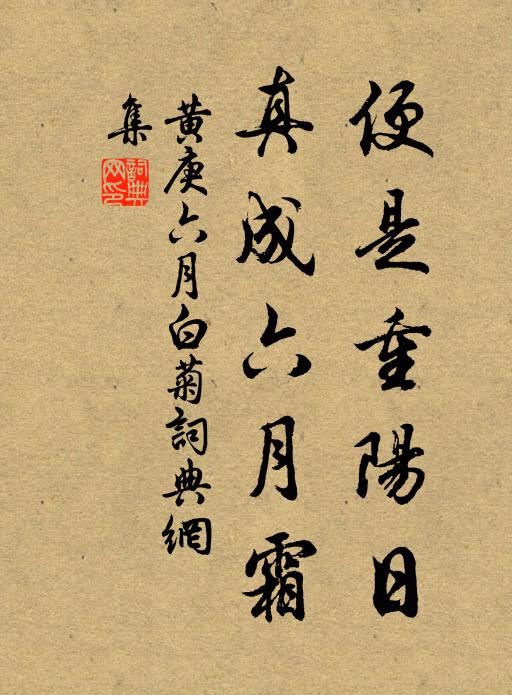 便是重陽日
真成六月霜
黄庚六月白菊詞典網
集
詞典
网印